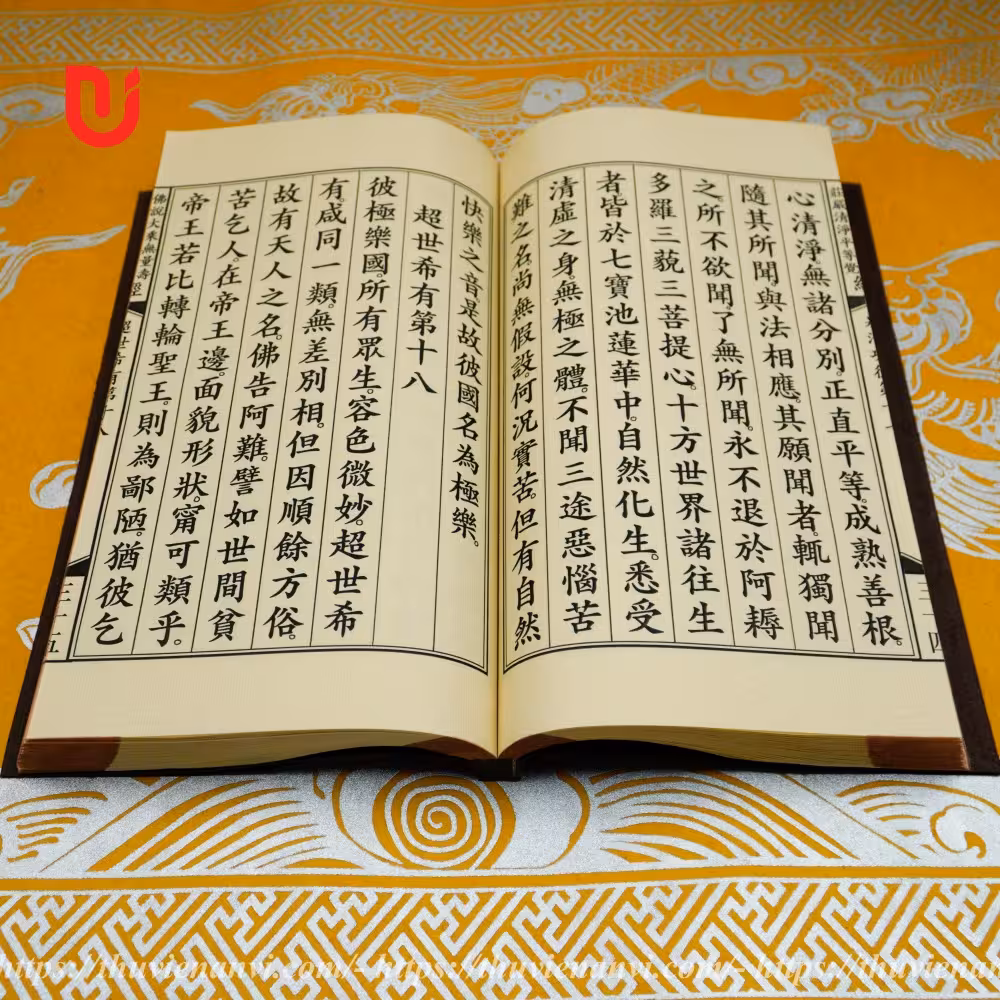 莊嚴清淨平等覺經
心清淨。無諸分別。正直平等。成熟善根。
隨其所聞。與法相應。其願聞者。輒獨聞
之。所不欲聞。了無所聞。永不退於阿耨
多羅三藐三菩提心。十方世界諸往生
者。皆於七寶池蓮華中。自然化生。悉受
清虛之身。無極之體。不聞三途惡惱苦
難之名。尚無假設。何況實苦。但有自然
快樂之音。是故彼國名為極樂。
超世希有第十八
彼極樂國。所有眾生。容色微妙。超世希
有。咸同一類。無差別相。但因順餘方俗。
故有天人之名。佛告阿難。譬如世間貧
苦乞人。在帝王邊。面貌形狀。甯可類乎。
帝王若比轉輪聖王。則為鄙陋。猶彼乞
佛說大乘無量壽經
超世希有第十八
三十五
https://thuvienanvi.com/- https://thuvienanvi.com/- https://thuvienanvi